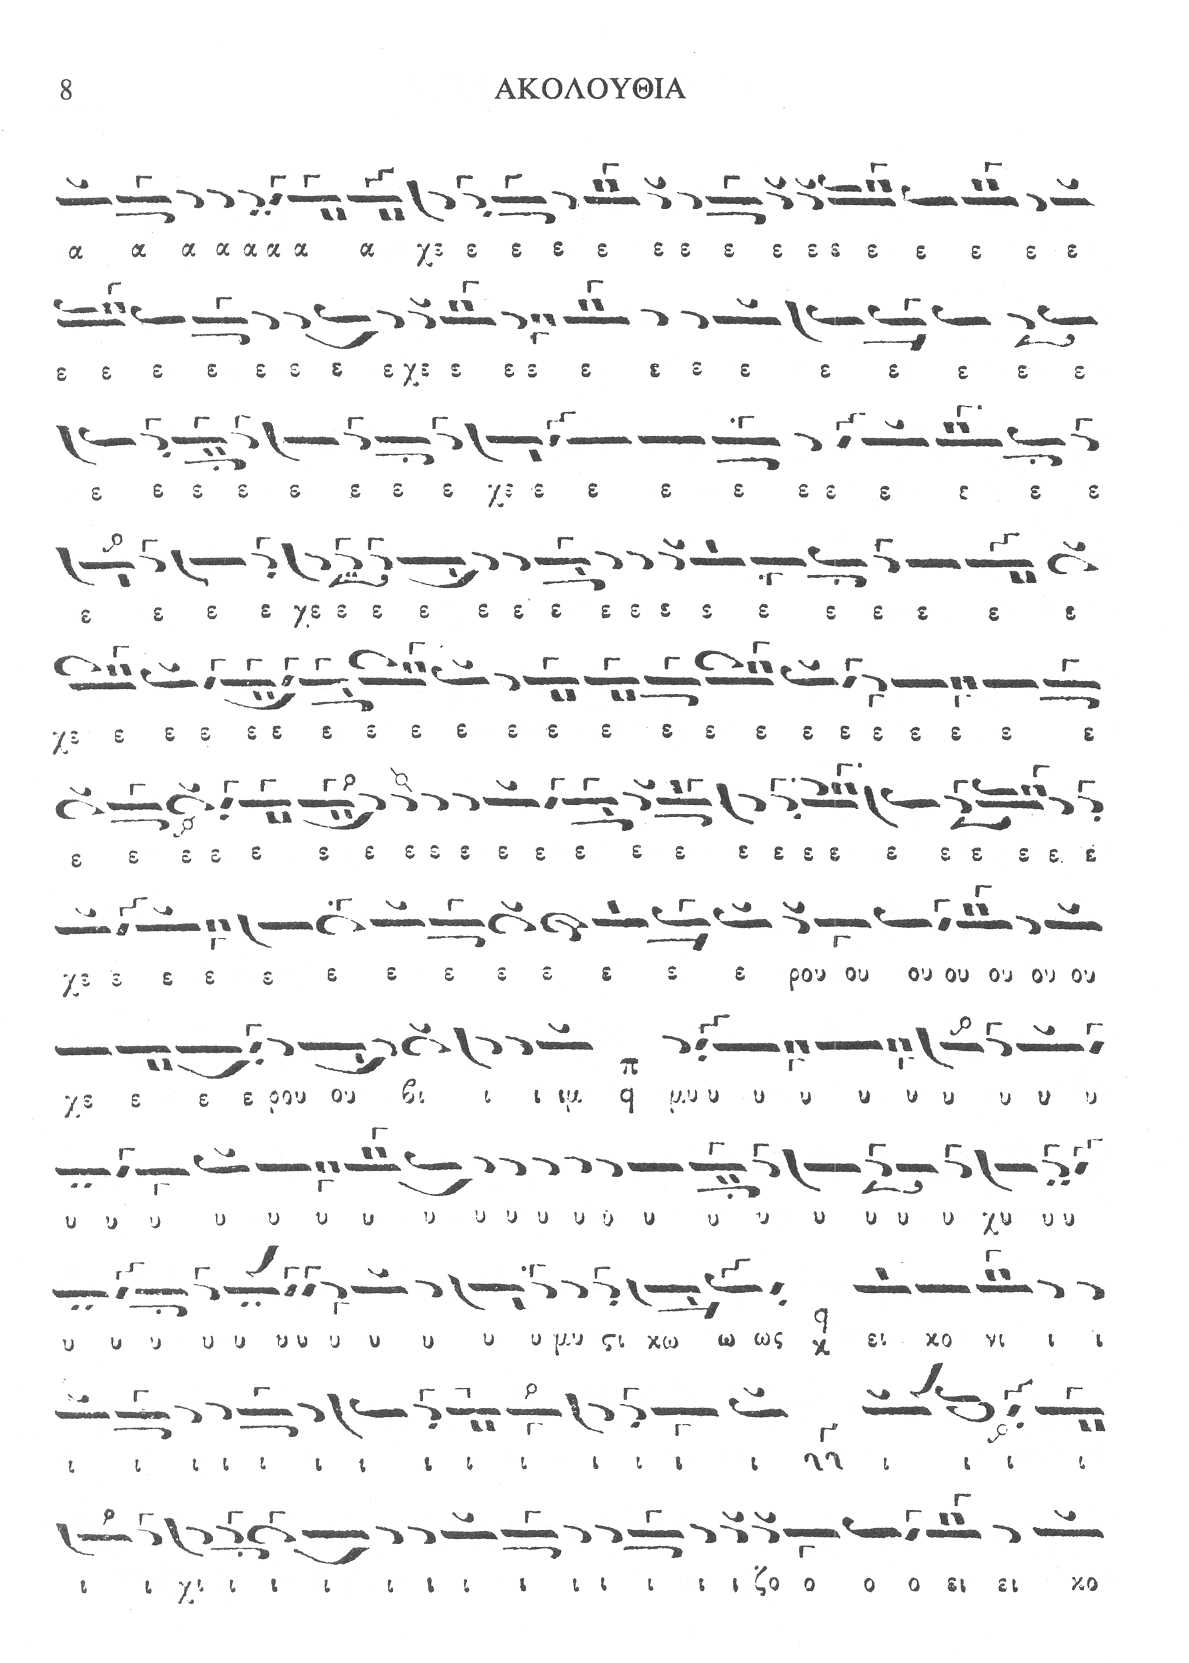 8 ΑΚΟΛΟΥΘΙΑ
α α α α α α α α χε ε ε ε ε ε ε ε ε ε ε ε ε ε ε ε
ε ε ε ε ε ε ε ε χε ε ε ε ε ε ε ε ε ε ε ε ε
ε ε ε ε ε ε ε ε χε ε ε ε ε ε ε ε ε ε ε
ε ε ε ε χε ε ε ε ε ε ε ε ε ε ε ε ε ε ε ε ε
χε ε ε ε ε ε ε ε ε ε ε ε ε ε ε ε ε ε ε ε ε ε ε
ε ε ε ε ε ε ε ε ε ε ε ε ε ε ε ε ε ε ε ε ε ε ε ε ε
χε ε ε ε ε ε ε ε ε ε ε ε ε ρου ου ου ου ου ου ου
χε ε ε ε ρου ου βι ι ι ιμ π q μυ υ υ υ υ υ υ υ υ υ
υ υ υ υ υ υ υ υ υ υ υ υ υ υ υ υ υ υ υ υ χυ υ υ
υ υ υ υ υ υ υ υ υ υ υ υ μυ ςι κω ω ως q χ ει κο νι ι ι
ι ι ι ι ι ι ι ι ι ι ι ι ι ι ι ι ι ι
ι ι χι ι ι ι ι ι ι ι ι ι ι ι ι ζο ο ο ο ει ει κο